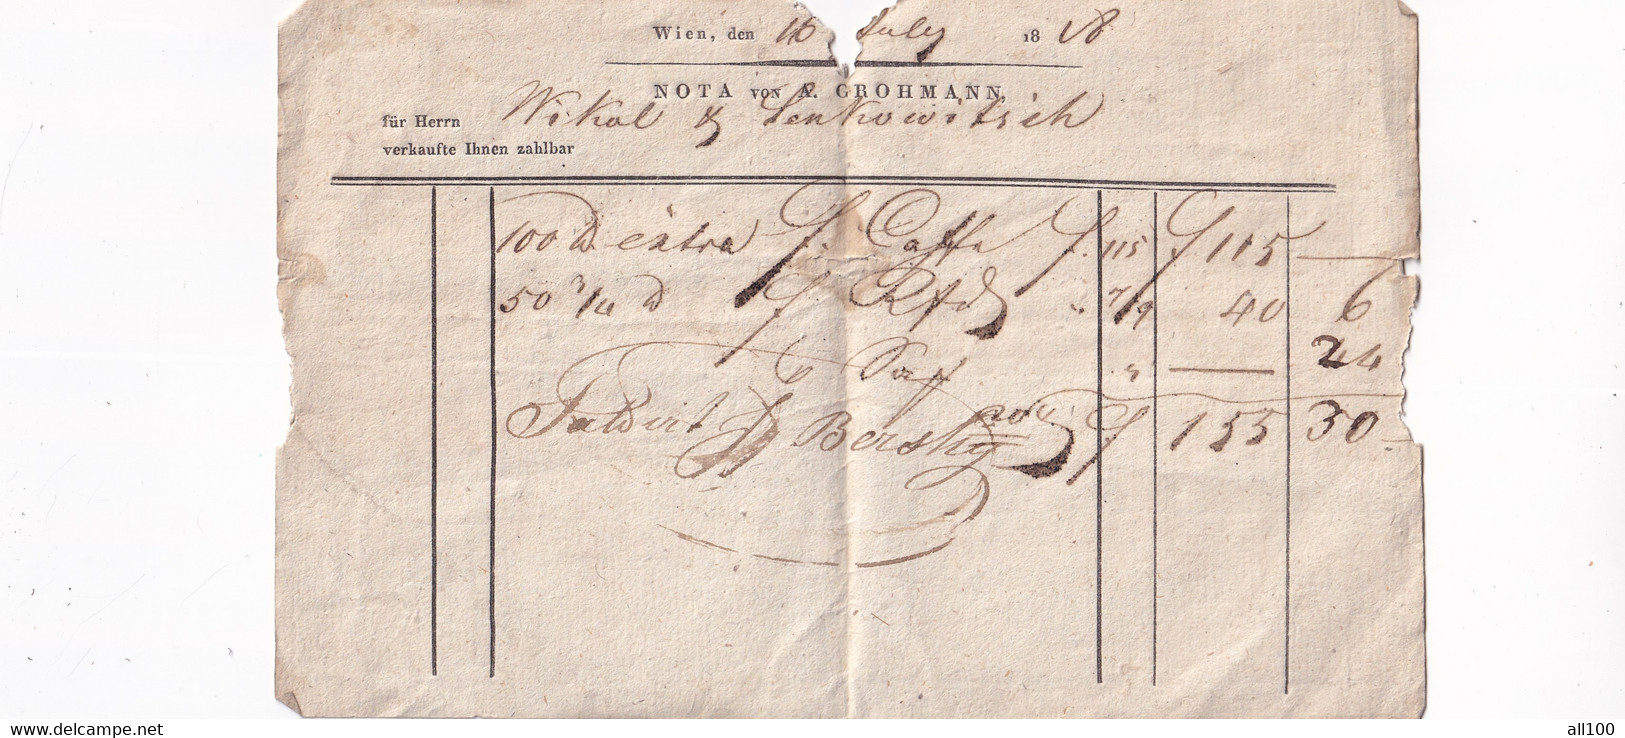 Wien, den 16 July 1818
NOTA von A. GROHMANN,
für Herrn Wikol & Lenkowitsch
verkaufte Ihnen zahlbar
100 ℔ extra f. Caffe f. 115 f 115 —
50 3/4 ℔ f Rfd " 7/9 40 6
Saf " — 24
f 155 30
www.delcampe.net
all100